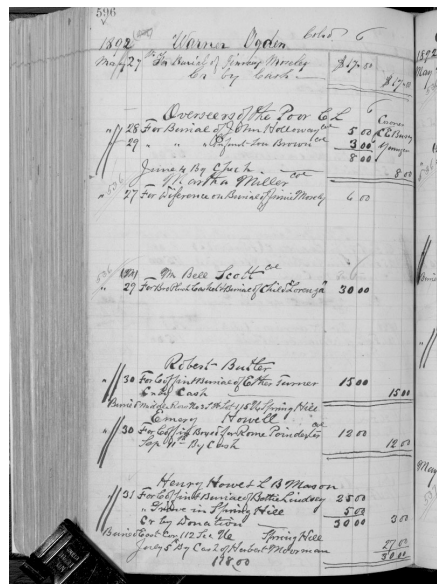 596
1892 Warner Ogden Cold 6
May 27 To Burial of Moseley $17.00
Cr by Cash $17.00
Overseers of the Poor E L 6
" 28 For Burial of John Holloway col 5 00
29 " " Infant Lou Brown col 3 00
8 00
June 4 By Check 8 00
Martha Miller col
" 27 For Diference on Burial of Jinnie Mosely 6 00
Bell Scott col
" 29 For Casket & Burial of Child 30 00
Robert Butler
" 30 For Coffin & Burial of Esther Turner 15 00
Cr By Cash 15 00
Buried Middle Row No 3 Spring Hill
Emery Howell col
" 30 For Coffin for Rome Poindexter 12 00
By Cash 12 00
Henry Howel L B Mason
" 31 For Coffin & Burial of Bettie Lindsey 25 00
" Grave in Spring Hill 5 00
Cr by Donation 30 00 3 00
Buried East 112 Sec Spring Hill
July 5 By Cash of Hubert Moorman 27 00
30 00
178.00